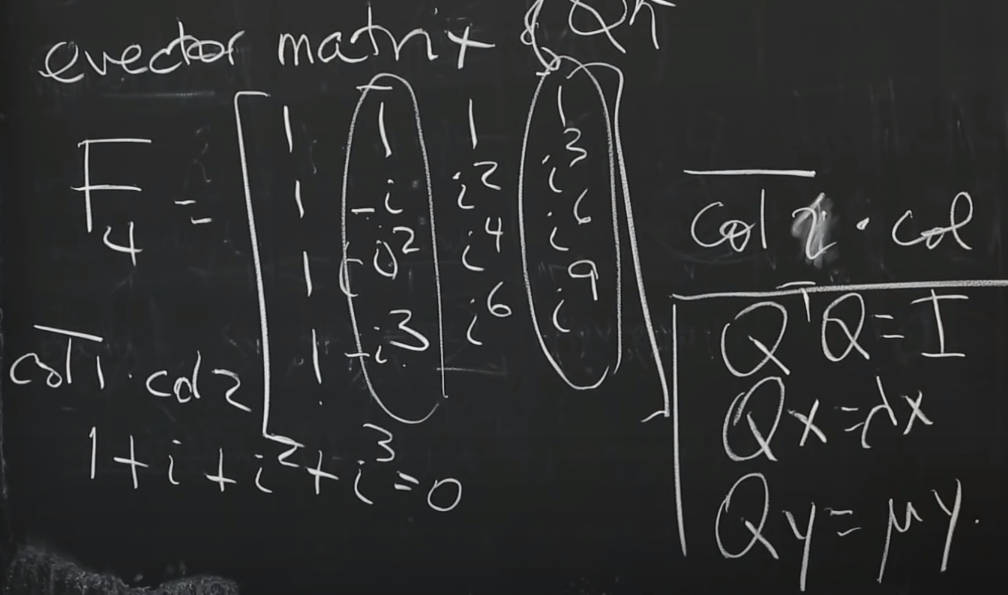 evector matrix of Q
F₄ = [ 1 1 1 1
1 -i i² i³
1 (-i)² i⁴ i⁶
1 -i³ i⁶ i⁹ ]
col 1 · col 2
1 + i + i² + i³ = 0
col 2 · col
QᵀQ = I
Qx = λx
Qy = μy.